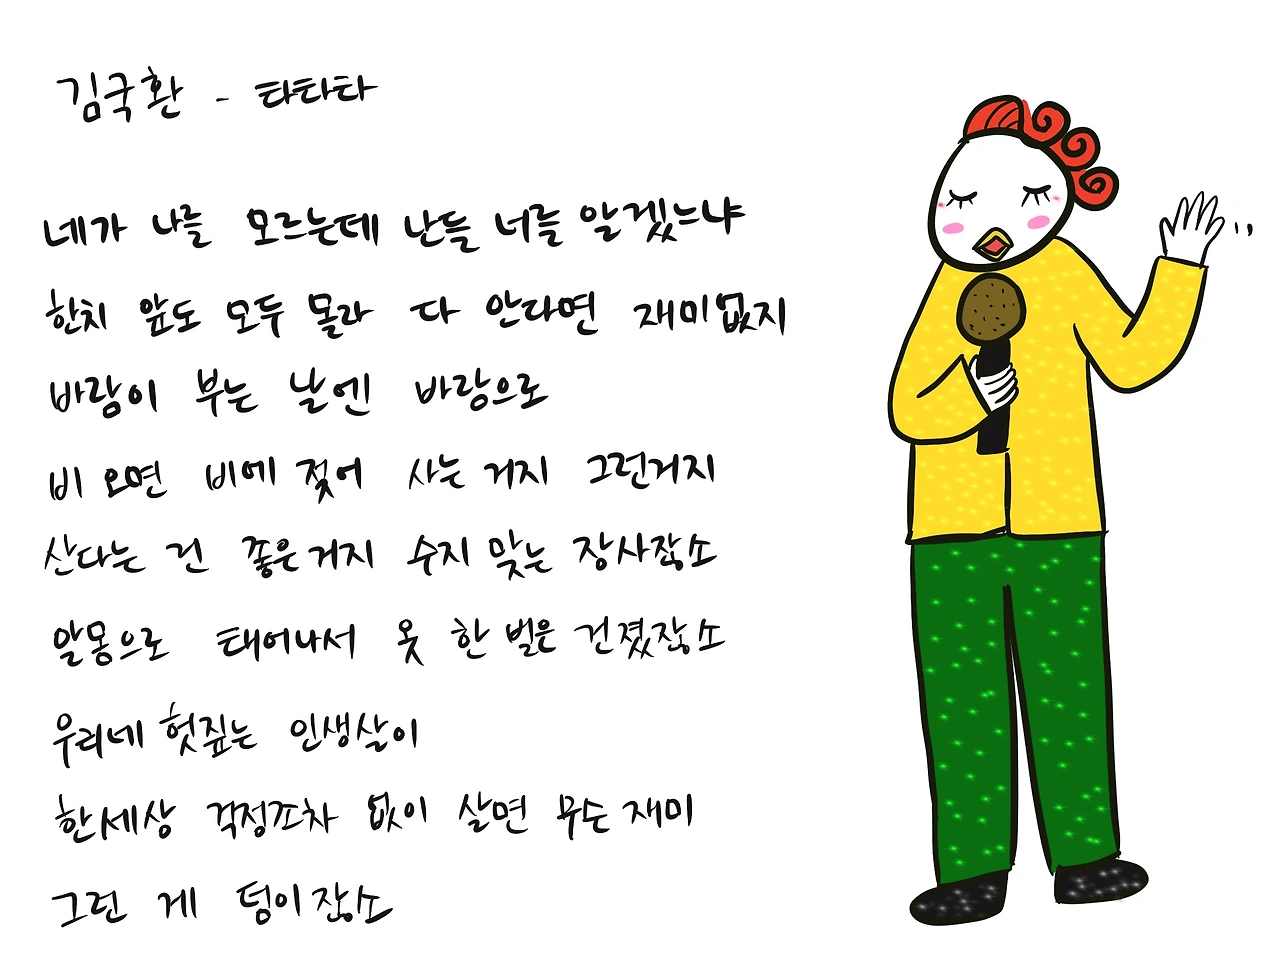 김국환 - 타타타
네가 나를 모르는데 난들 너를 알겠느냐
한치 앞도 모두 몰라 다 안다면 재미없지
바람이 부는 날엔 바람으로
비 오면 비에 젖어 사는 거지 그런거지
산다는 건 좋은거지 수지 맞는 장사잖소
알몸으로 태어나서 옷 한 벌은 건졌잖소
우리네 헛짚는 인생살이
한세상 걱정조차 없이 살면 무슨 재미
그런 게 덤이잖소